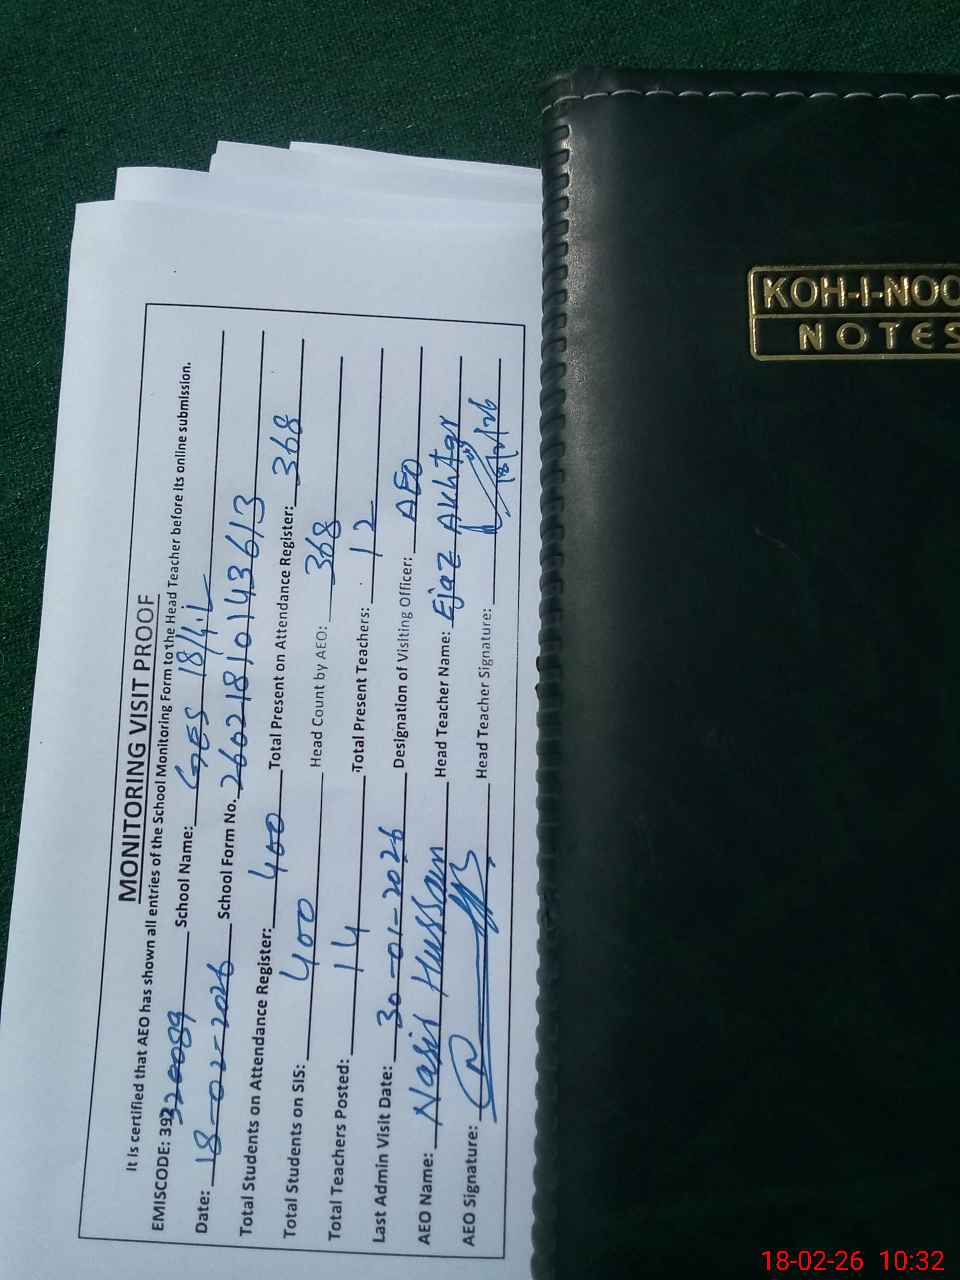 MONITORING VISIT PROOF
It is certified that AEO has shown all entries of the School Monitoring Form to the Head Teacher before its online submission.
EMISCODE: 39320089 School Name: GES 18/4.L
Date: 18-02-2026 School Form No. 2602181014 3613
Total Students on Attendance Register: 400 Total Present on Attendance Register: 368
Total Students on SIS: 400 Head Count by AEO: 368
Total Teachers Posted: 14 Total Present Teachers: 12
Last Admin Visit Date: 30-01-2026 Designation of Visiting Officer: AEO
AEO Name: Nasir Hussain Head Teacher Name: Ejaz Akhtar
AEO Signature: Head Teacher Signature: 18/2/26
KOH-I-NOO
NOTES
18-02-26 10:32